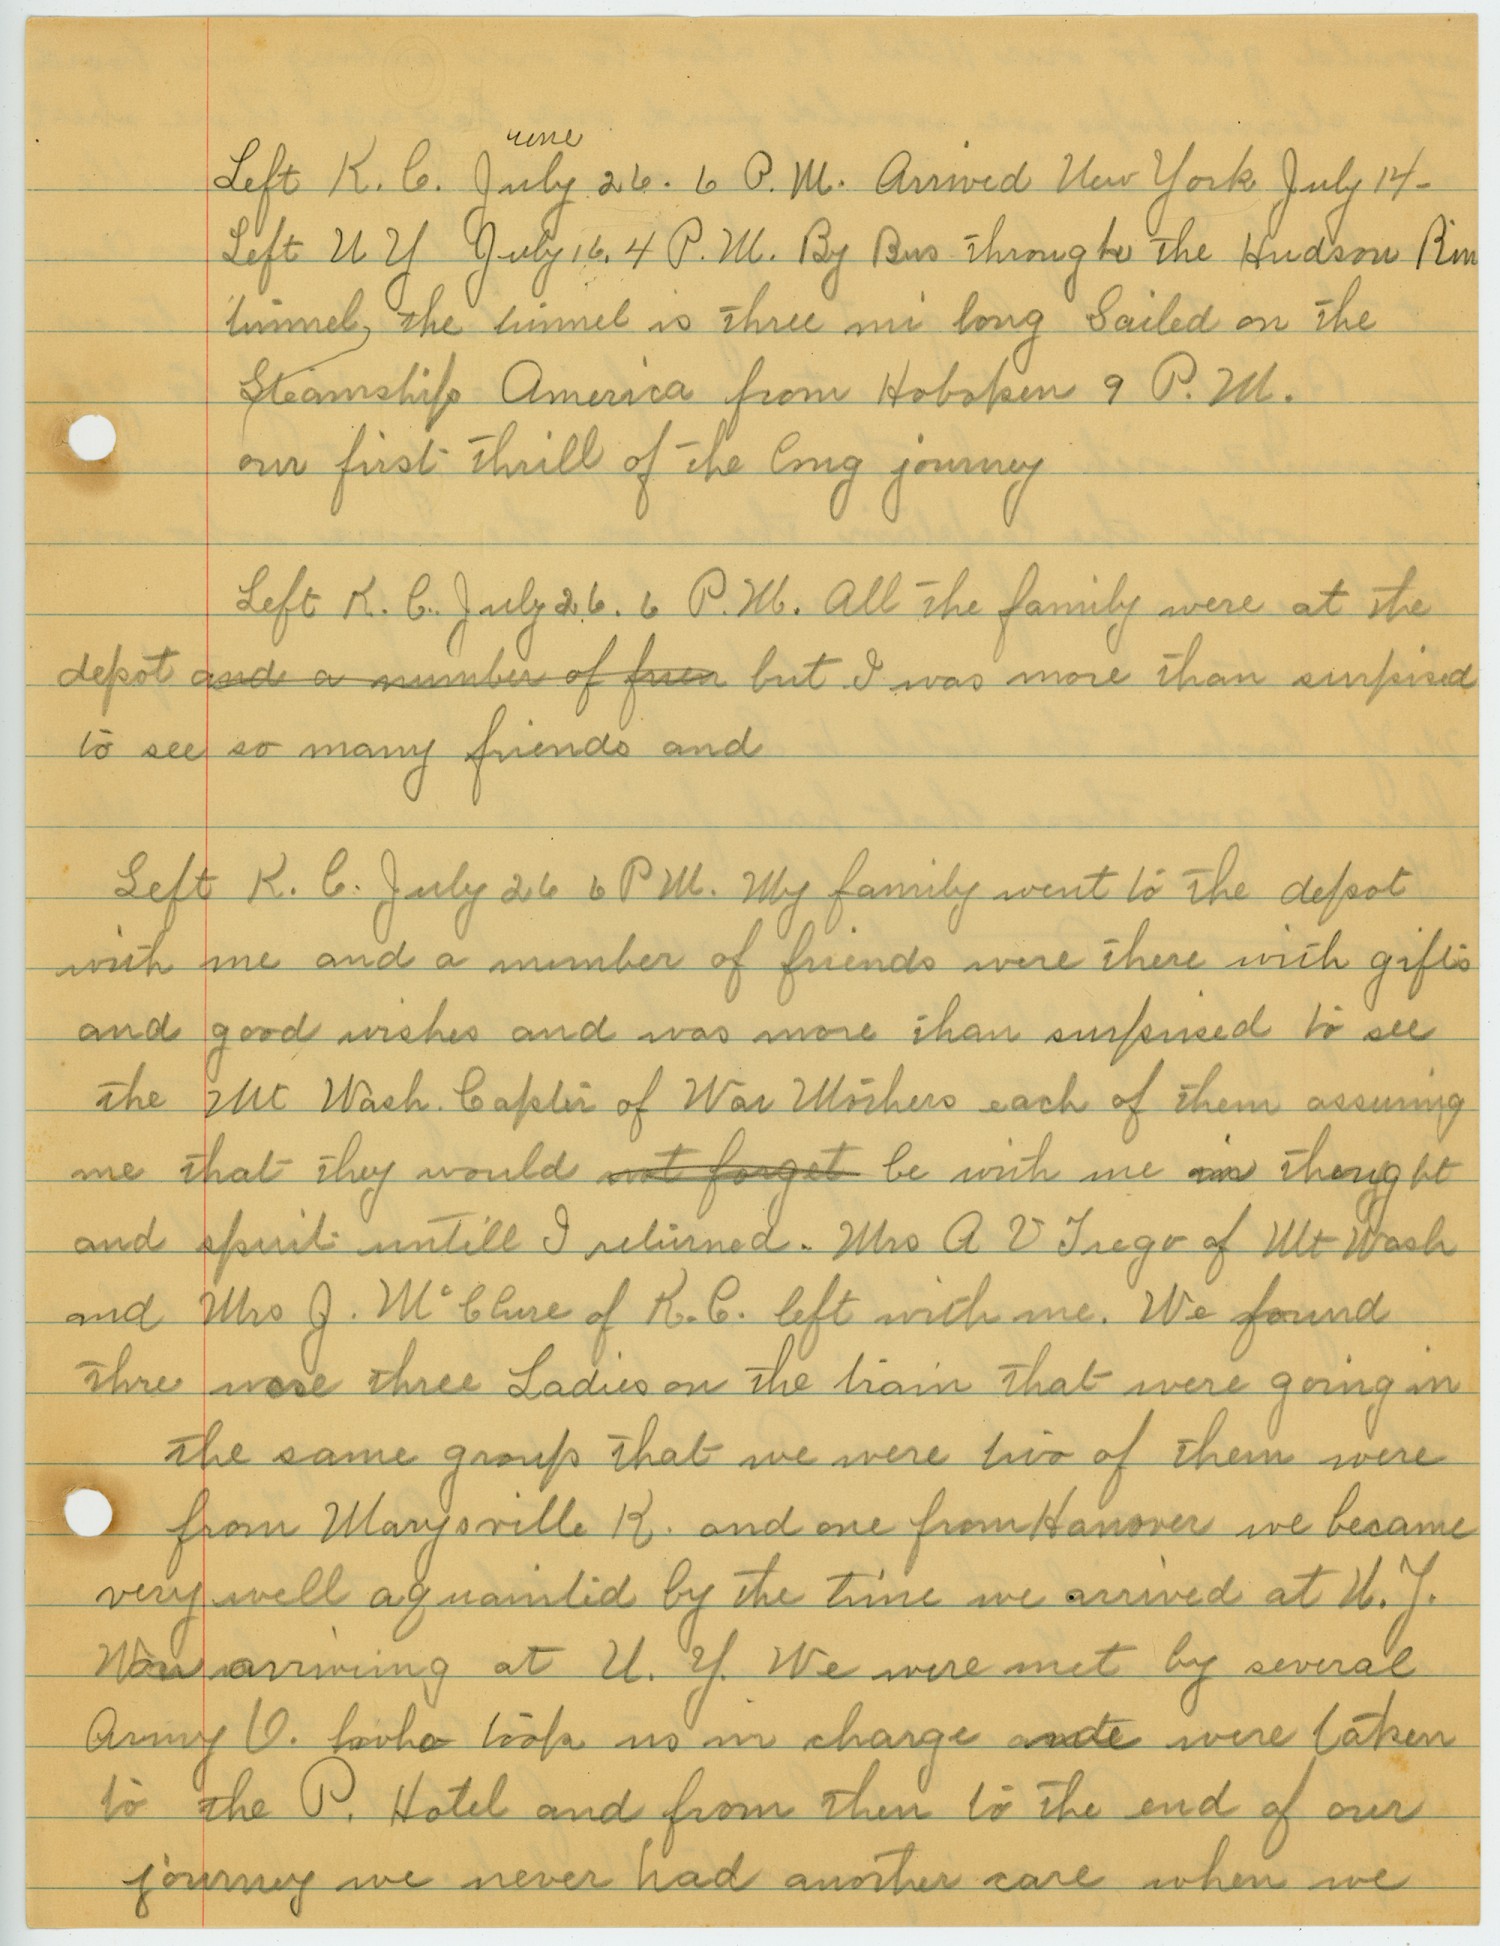 une
Left K. C. July 26. 6 P. M. Arrived New York July 14-
Left N Y July 16. 4 P. M. By Bus through the Hudson Riv
tunnel, the tunnel is three mi long Sailed on the
Steamship America from Hoboken 9 P. M.
our first thrill of the long journey
Left K. C. July 26. 6 P. M. All the family were at the
depot and a number of frien but I was more than surpised
to see so many friends and
Left K. C. July 26 6 P M. My family went to the depot
with me and a number of friends were there with gifts
and good wishes and was more than surprised to see
the Mt Wash. Capter of War Mothers each of them assuring
me that they would not forget be with me in thought
and spirit untill I returned. Mrs A V Trego of Mt Wash
and Mrs J. McClure of K. C. left with me. We found
thre were three Ladies on the train that were going in
the same group that we were two of them were
from Marysville K. and one from Hanover we became
very well aquainted by the time we arrived at N. Y.
arriving at N. Y. We were met by several
Army O. who took us in charge and were taken
to the P. Hotel and from then to the end of our
journey we never had another care when we